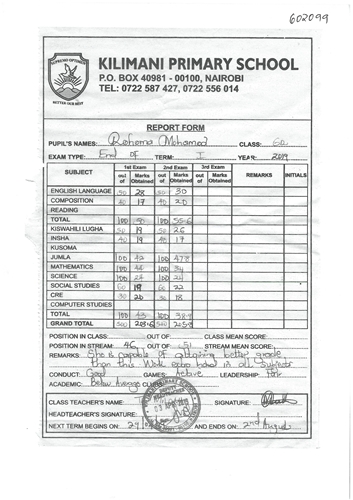 602099
KILIMANI PRIMARY SCHOOL
P.O. BOX 40981 - 00100, NAIROBI
TEL: 0722 587 427, 0722 556 014
REPORT FORM
PUPIL'S NAMES: Mohamed CLASS:
EXAM TYPE: End of TERM: I YEAR: 2019
SUBJECT 1st Exam 2nd Exam 3rd Exam REMARKS INITIALS
out of Marks Obtained out of Marks Obtained out of Marks Obtained
ENGLISH LANGUAGE 50 28 50 30
COMPOSITION 40 17 40 20
READING
TOTAL 100 50 100 55.6
KISWAHILI LUGHA 50 19 50 26
INSHA 40 19 40 17
KUSOMA
JUMLA 100 42 100 47.8
MATHEMATICS 100 44 100 34
SCIENCE 100 24 100 24
SOCIAL STUDIES 60 19 60 22
CRE 30 20 30 18
COMPUTER STUDIES
TOTAL 100 43 100
GRAND TOTAL 500 500
POSITION IN CLASS: OUT OF: CLASS MEAN SCORE:
POSITION IN STREAM: 46 OUT OF: 51 STREAM MEAN SCORE:
REMARKS: She is capable of obtaining better grade
than this. Work extra hard in all subjects
CONDUCT: Good GAMES: Active LEADERSHIP: Fair
ACADEMIC: Below Average
CLASS TEACHER'S NAME: SIGNATURE:
HEADTEACHER'S SIGNATURE:
NEXT TERM BEGINS ON: AND ENDS ON: 2nd August